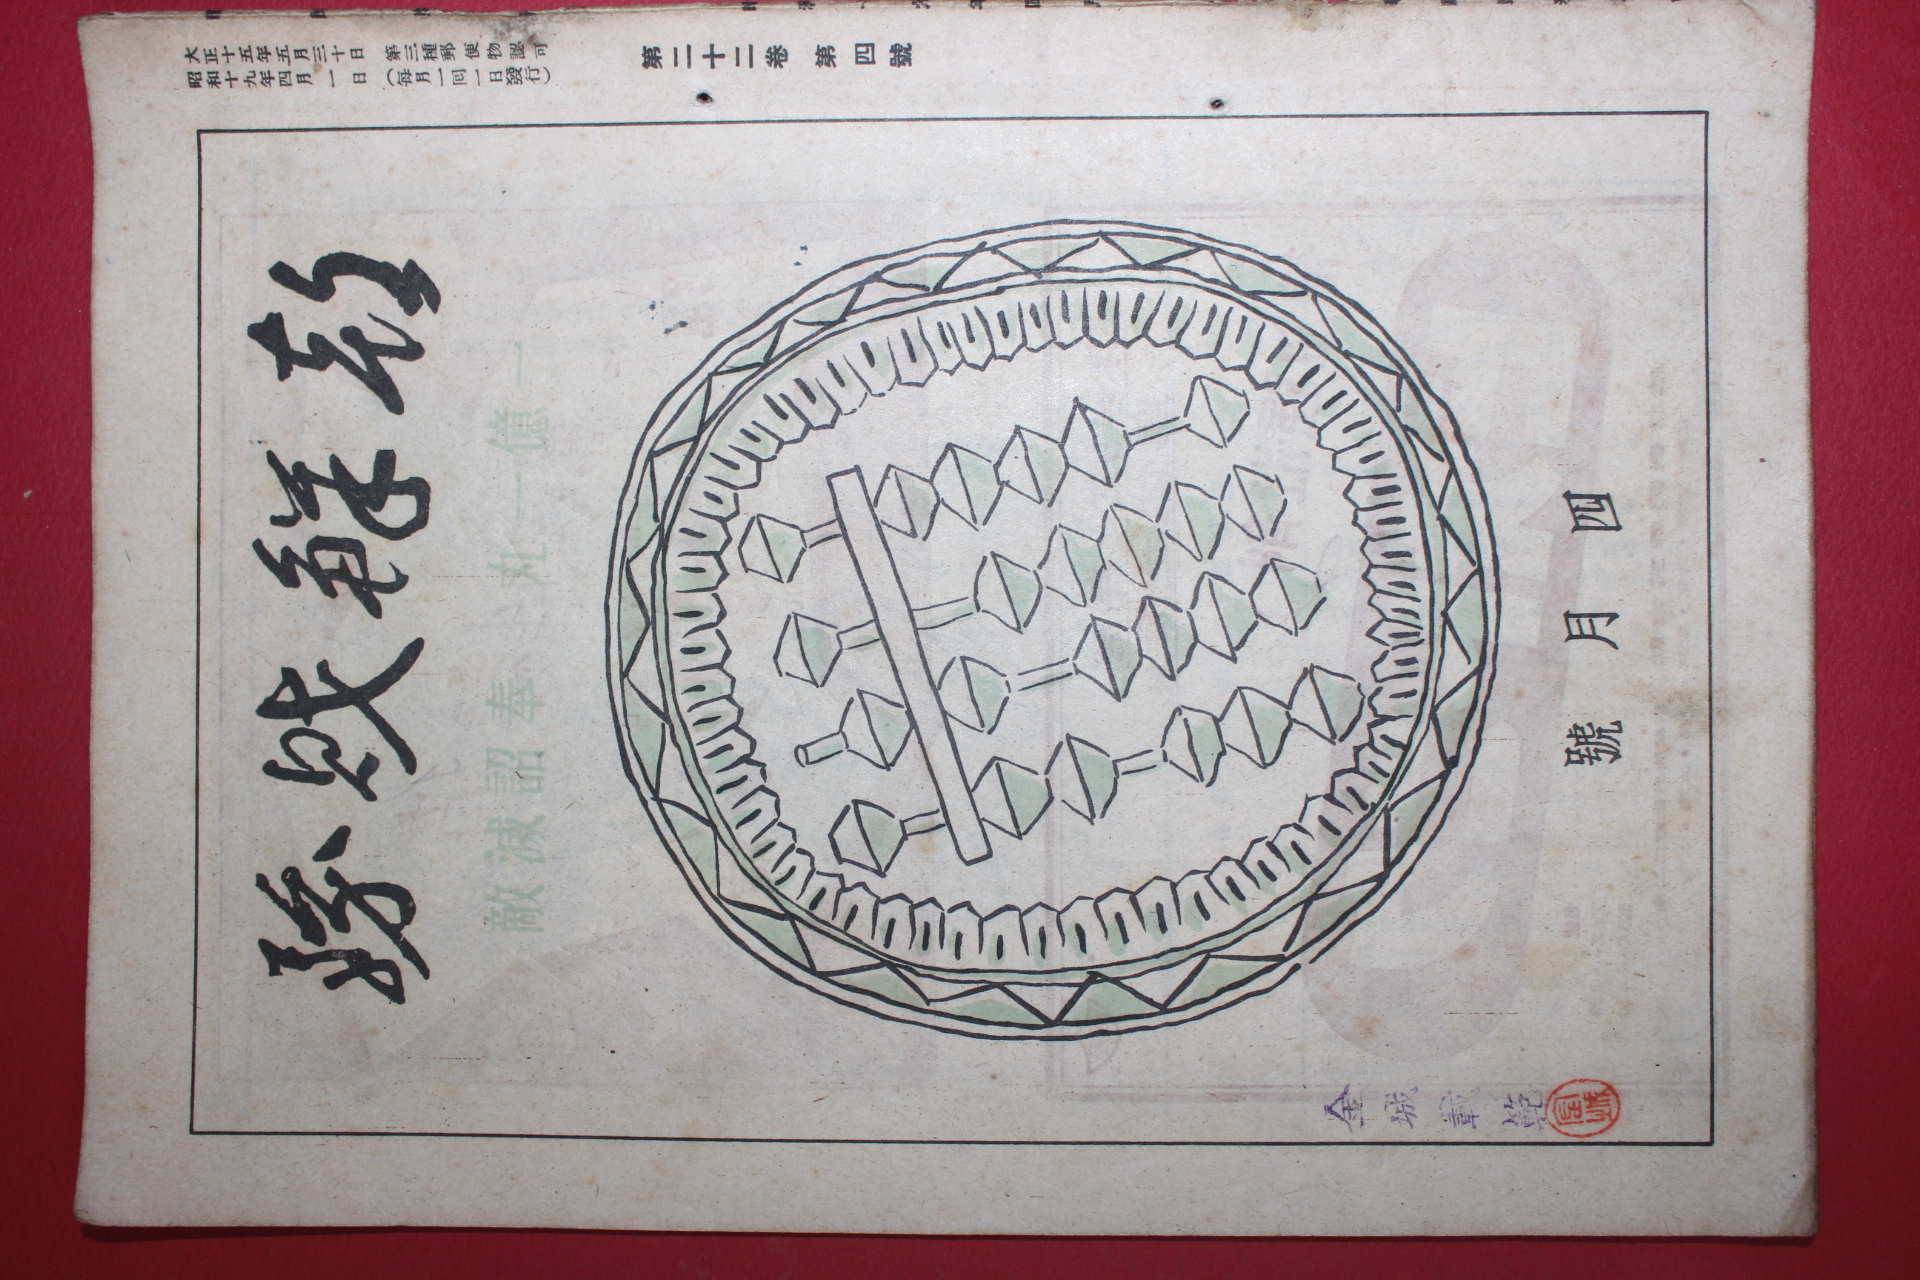 大正十五年五月三十日 第三種郵便物認可
昭和十九年四月一日（每月一回一日發行）
第二十二卷 第四號
朝鮮財務
一億一丸 奉詔滅敵
四月號
金城載範